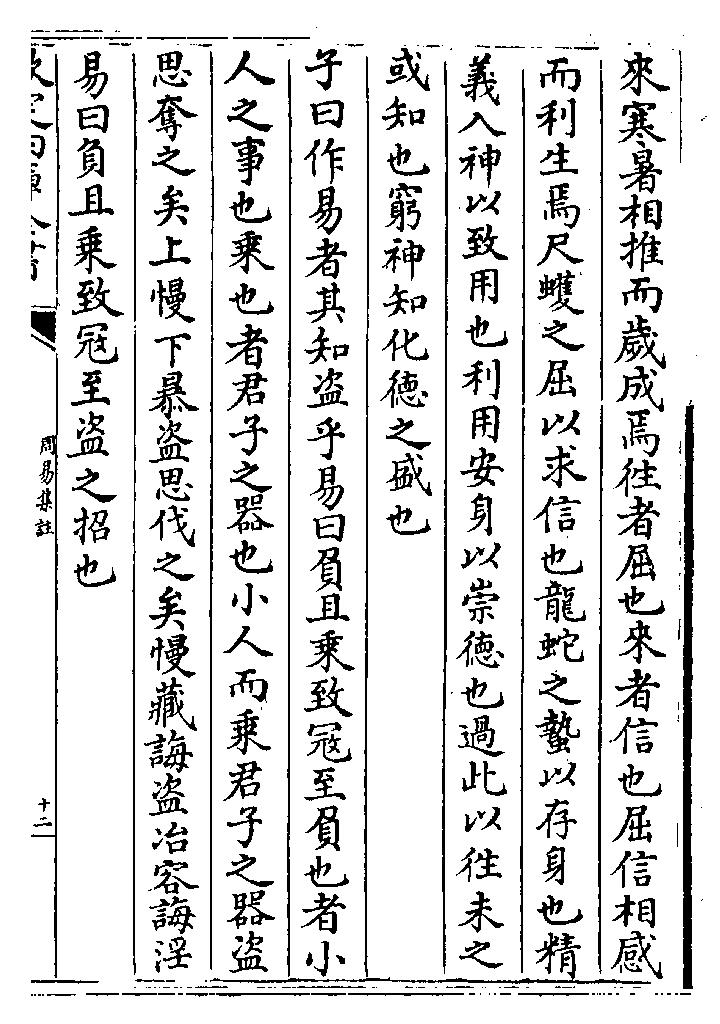 來寒暑相推而歲成焉往者屈也來者信也屈信相感
而利生焉尺蠖之屈以求信也龍蛇之蟄以存身也精
義入神以致用也利用安身以崇德也過此以往未之
或知也窮神知化德之盛也
子曰作易者其知盗乎易曰負且乘致冦至負也者小
人之事也乘也者君子之器也小人而乘君子之器盗
思奪之矣上慢下暴盗思伐之矣慢藏誨盗冶容誨淫
易曰負且乘致冦至盗之招也
欽定四庫全書
周易集註
十二